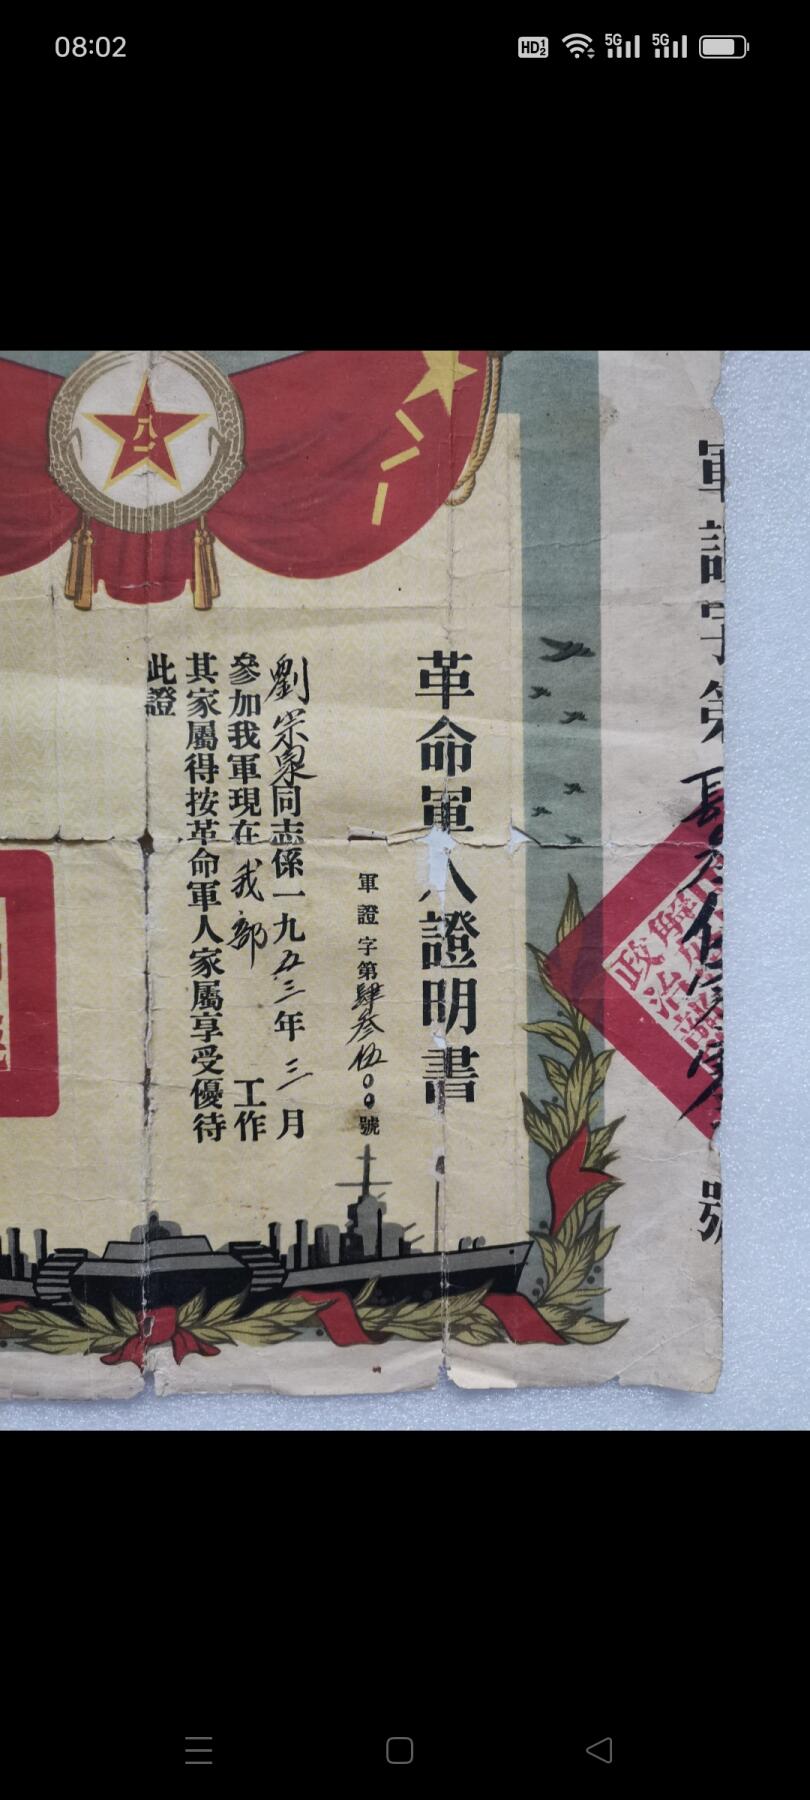 08:02
HD
5G
5G
八一
八一
軍證字第肆叁伍零零號
革命軍人證明書
軍證字第肆叁伍00號
劉宗泉同志係一九五三年三月
參加我軍現在我部工作
其家屬得按革命軍人家屬享受優待
此證
政治部